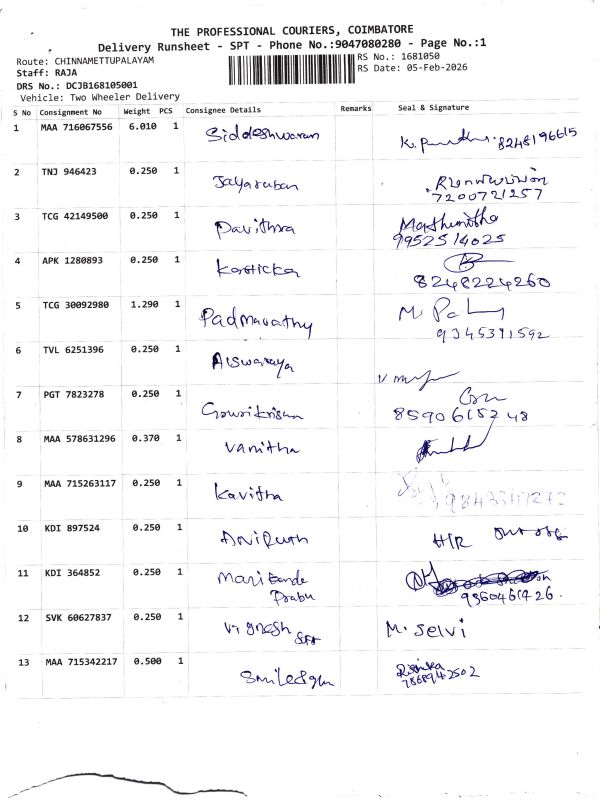 THE PROFESSIONAL COURIERS, COIMBATORE
Delivery Runsheet - SPT - Phone No.:9047080280 - Page No.:1
Route: CHINNAMETTUPALAYAM RS No.: 1681050
Staff: RAJA RS Date: 05-Feb-2026
DRS No.: DCJB168105001
Vehicle: Two Wheeler Delivery
S No Consignment No Weight PCS Consignee Details Remarks Seal & Signature
1 MAA 716067556 6.010 1 Siddeshwaran 8248196615
2 TNJ 946423 0.250 1 Jayaruban
7200721257
3 TCG 42149500 0.250 1 Pavithra Mathumitha
9952514025
4 APK 1280893 0.250 1 Karticka
8248224260
5 TCG 30092980 1.290 1 Padmavathy M
9345391592
6 TVL 6251396 0.250 1 Aiswaraya
7 PGT 7823278 0.250 1 Gowrikrisna
8590615248
8 MAA 578631296 0.370 1 Vanitha
9 MAA 715263117 0.250 1 Kavitha
10 KDI 897524 0.250 1 AniRuth H/R
11 KDI 364852 0.250 1 Mari
Prabu 9360461426
12 SVK 60627837 0.250 1 Vignesh M. Selvi
13 MAA 715342217 0.500 1
7868942502